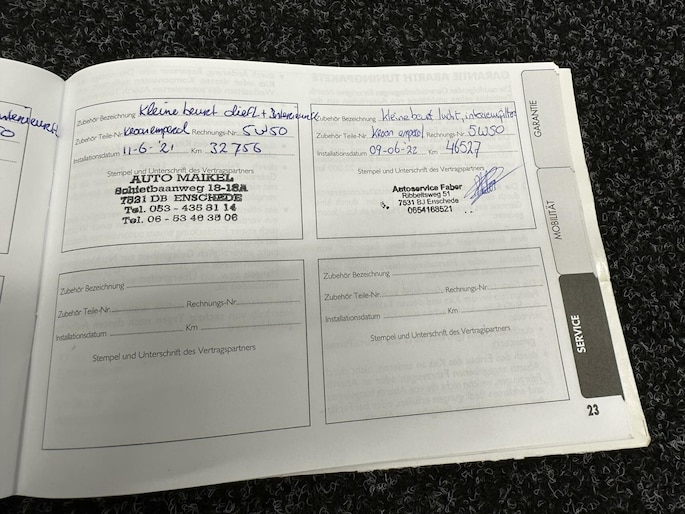 Zubehör Bezeichnung Kleine beurt
Zubehör Teile-Nr. Kroon emperol Rechnungs-Nr. 5W50
Installationsdatum 11-6-'21 Km 32756
Stempel und Unterschrift des Vertragspartners
AUTO MAIKEL
Schietbaanweg 18-18A
7521 DB ENSCHEDE
Tel. 053 - 435 81 14
Zubehör Bezeichnung Kleine beurt lucht, interieurfilter
Zubehör Teile-Nr. Kroon emperol Rechnungs-Nr. 5W50
Installationsdatum 09-06-'22 Km 46527
Stempel und Unterschrift des Vertragspartners
Autoservice Faber
Ribbeltsweg 51
7531 BJ Enschede
0654168521
Zubehör Bezeichnung
Zubehör Teile-Nr. Rechnungs-Nr.
Installationsdatum Km
Stempel und Unterschrift des Vertragspartners
Zubehör Bezeichnung
Zubehör Teile-Nr. Rechnungs-Nr.
Installationsdatum Km
Stempel und Unterschrift des Vertragspartners
GARANTIE
MOBILITÄT
SERVICE
23